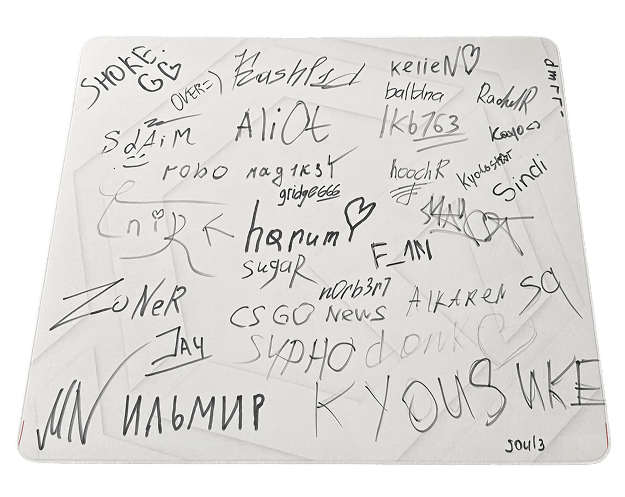 SHOKE.
GO
OVER=)
KuashPid
KelieN
balbina
RachelR
SdAiM
AliOt
lkb763
Kaayo<>
robo
mag1k3Y
gridge666
hoochR
Kyouseist
Sindi
hanum
F_1N
SugaR
ZoNeR
n0rb3r7
CS GO News
Alkaren
sq
JAY
SYPHO
donk
ИЛЬМИР
KYOUSUKE
soul3